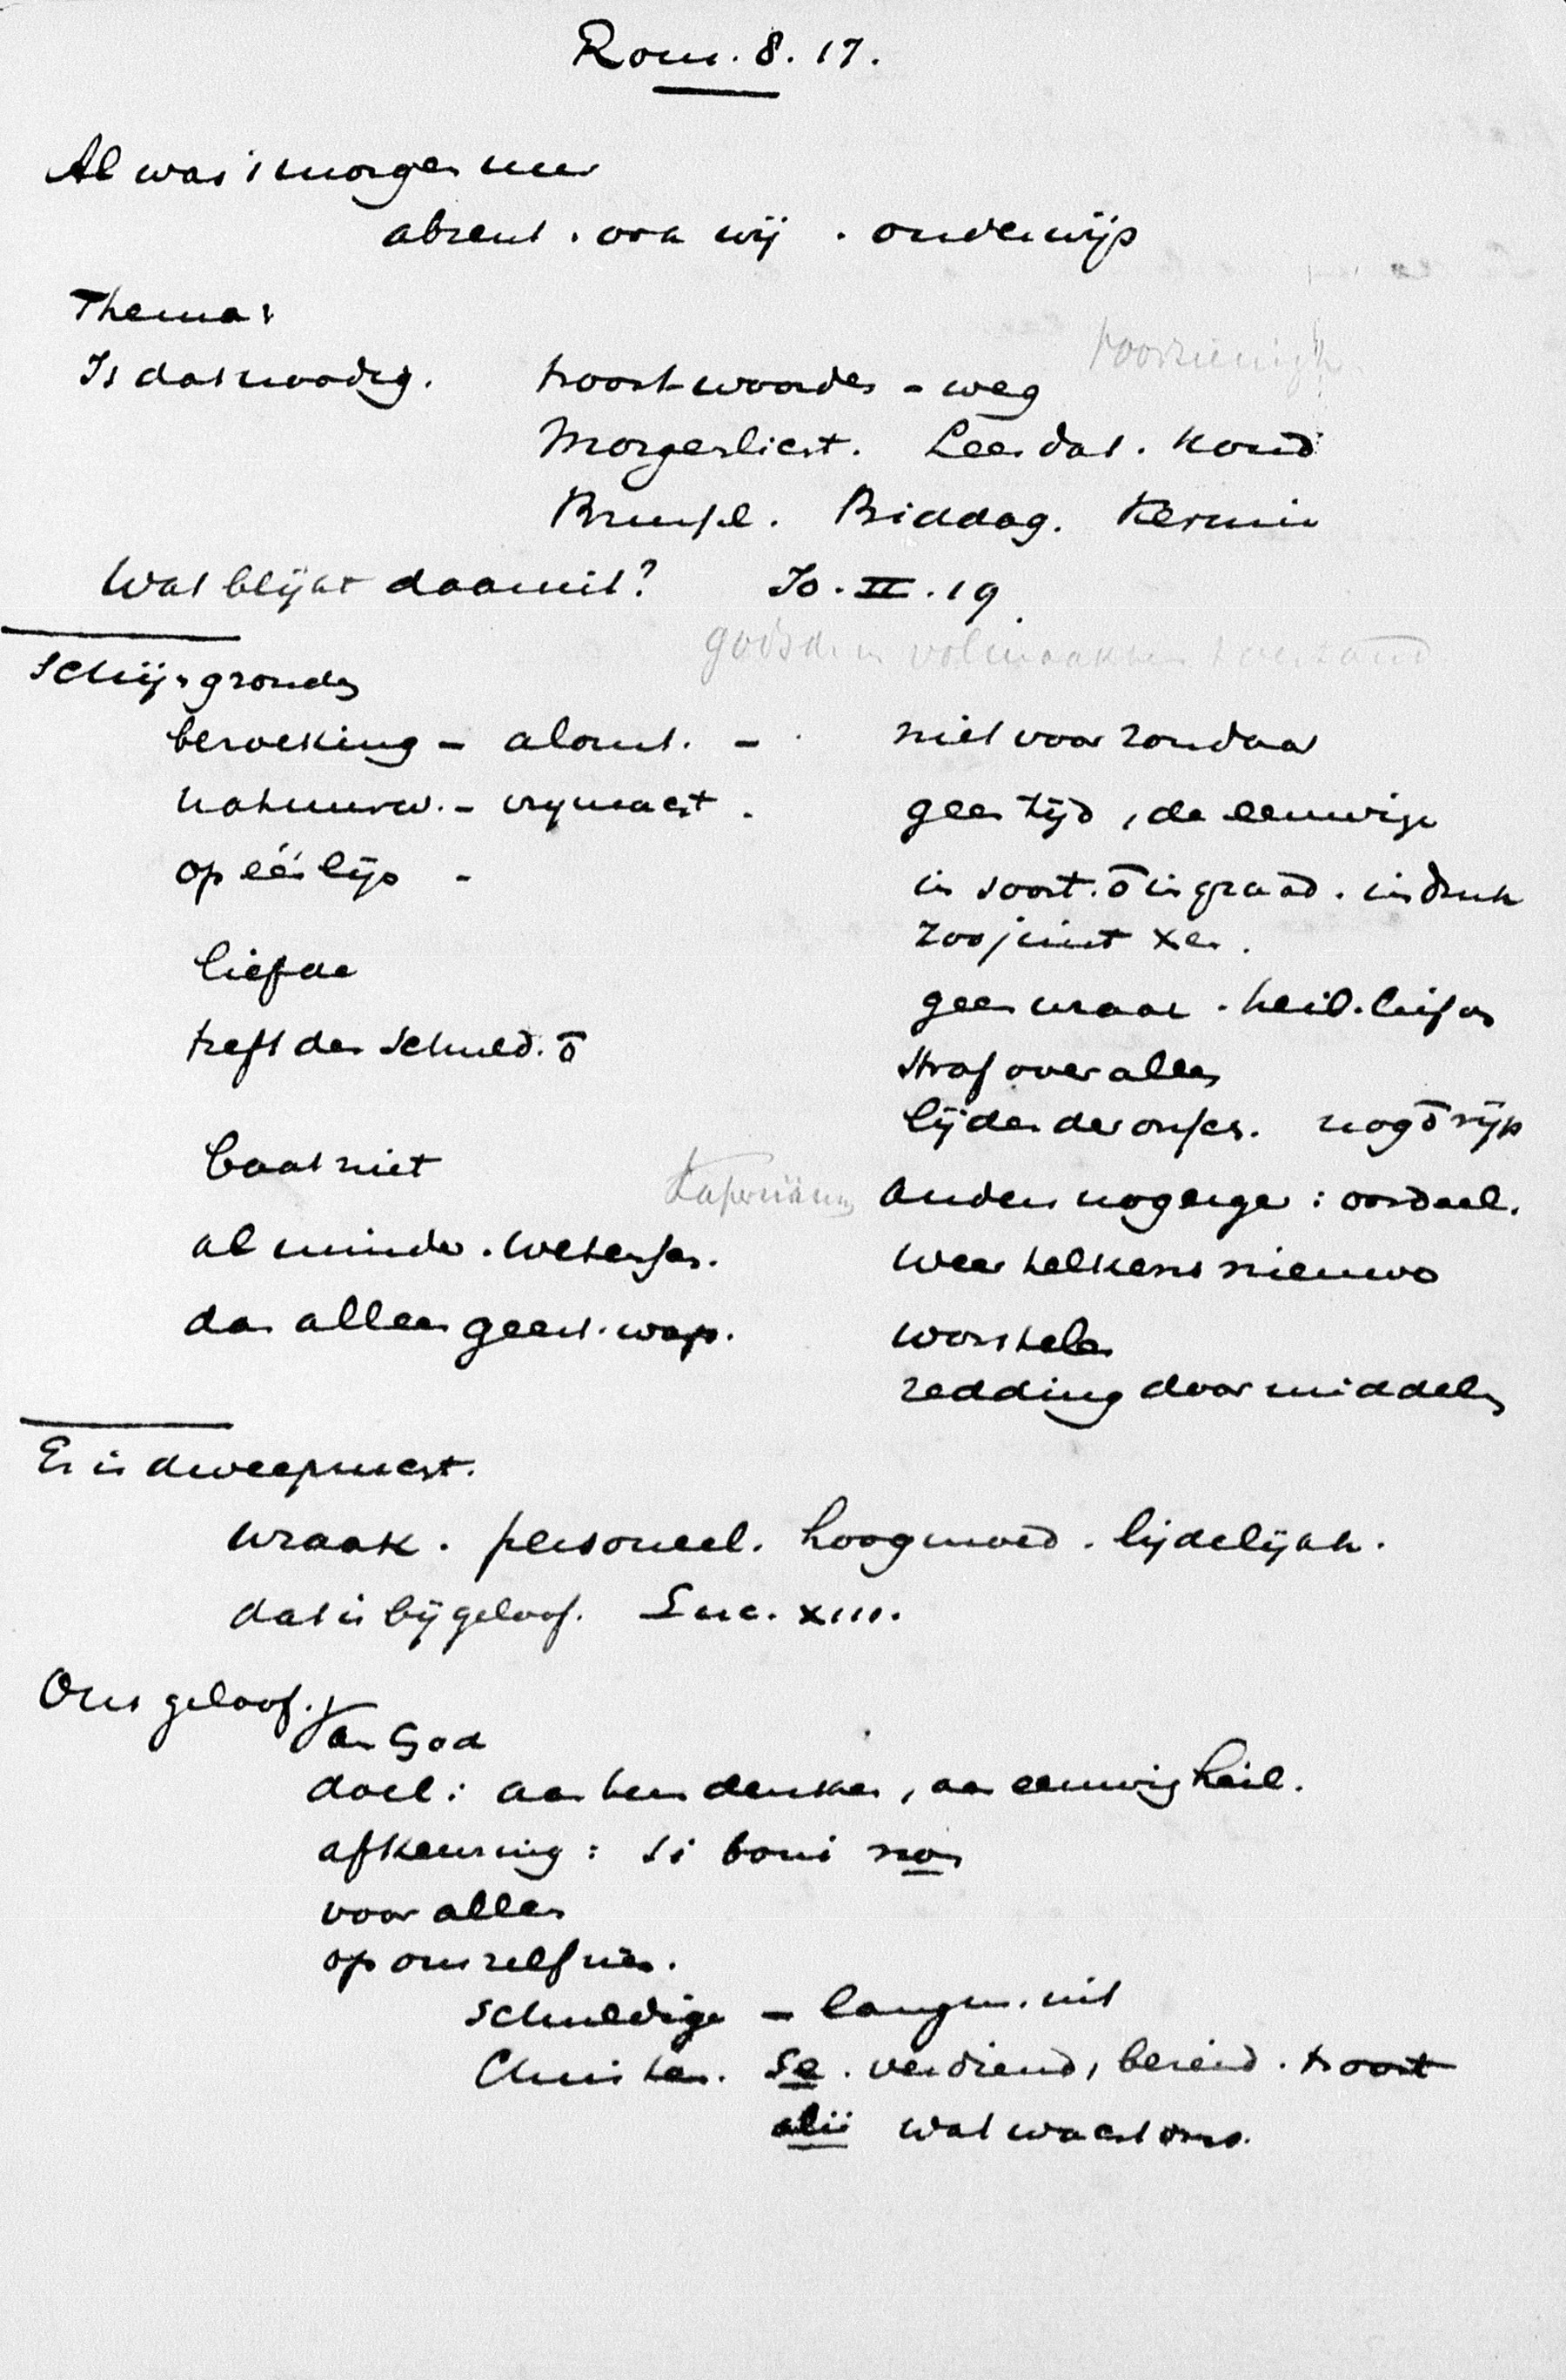 Rom. 8. 17.
Al was 's morgens
absent. ook wij. onderwijs
Thema:
Is dat noodig. troostwoorden – weg
Morgenlicht. Leer dat.
Biddag.
Wat blijkt daaruit? Jo. II. 19.
Schijngronden
beroeking – alomt. – niet voor zondaar
natuurw. – vrymacht. geen tijd, de eeuwige
op één lijn – in soort. ō in graad. indruk
zoo juist Xen.
liefde
geen wraak. heil. liefde
treft den schuld. ō
straf over allen
lijden der onsch. nog ō rijp
baat niet
anders nog erger: oordeel.
al minder. wetensch.
weer telkens nieuws
dan alleen geest. wap.
worstelen
redding door middelen
Er is dweepzucht.
wraak. personeel. hoogmoed. lijdelijkh.
dat is bijgeloof. Luc. XIII.
Ons geloof.
Van God
doel: aan hem denken, aan eeuwig heil.
afkeuring: si boni non
voor allen
op ons zelf zien.
schuldigen – langm. uit
Christen. Se. verdiend, bereid. troost
alii wat wacht ons.